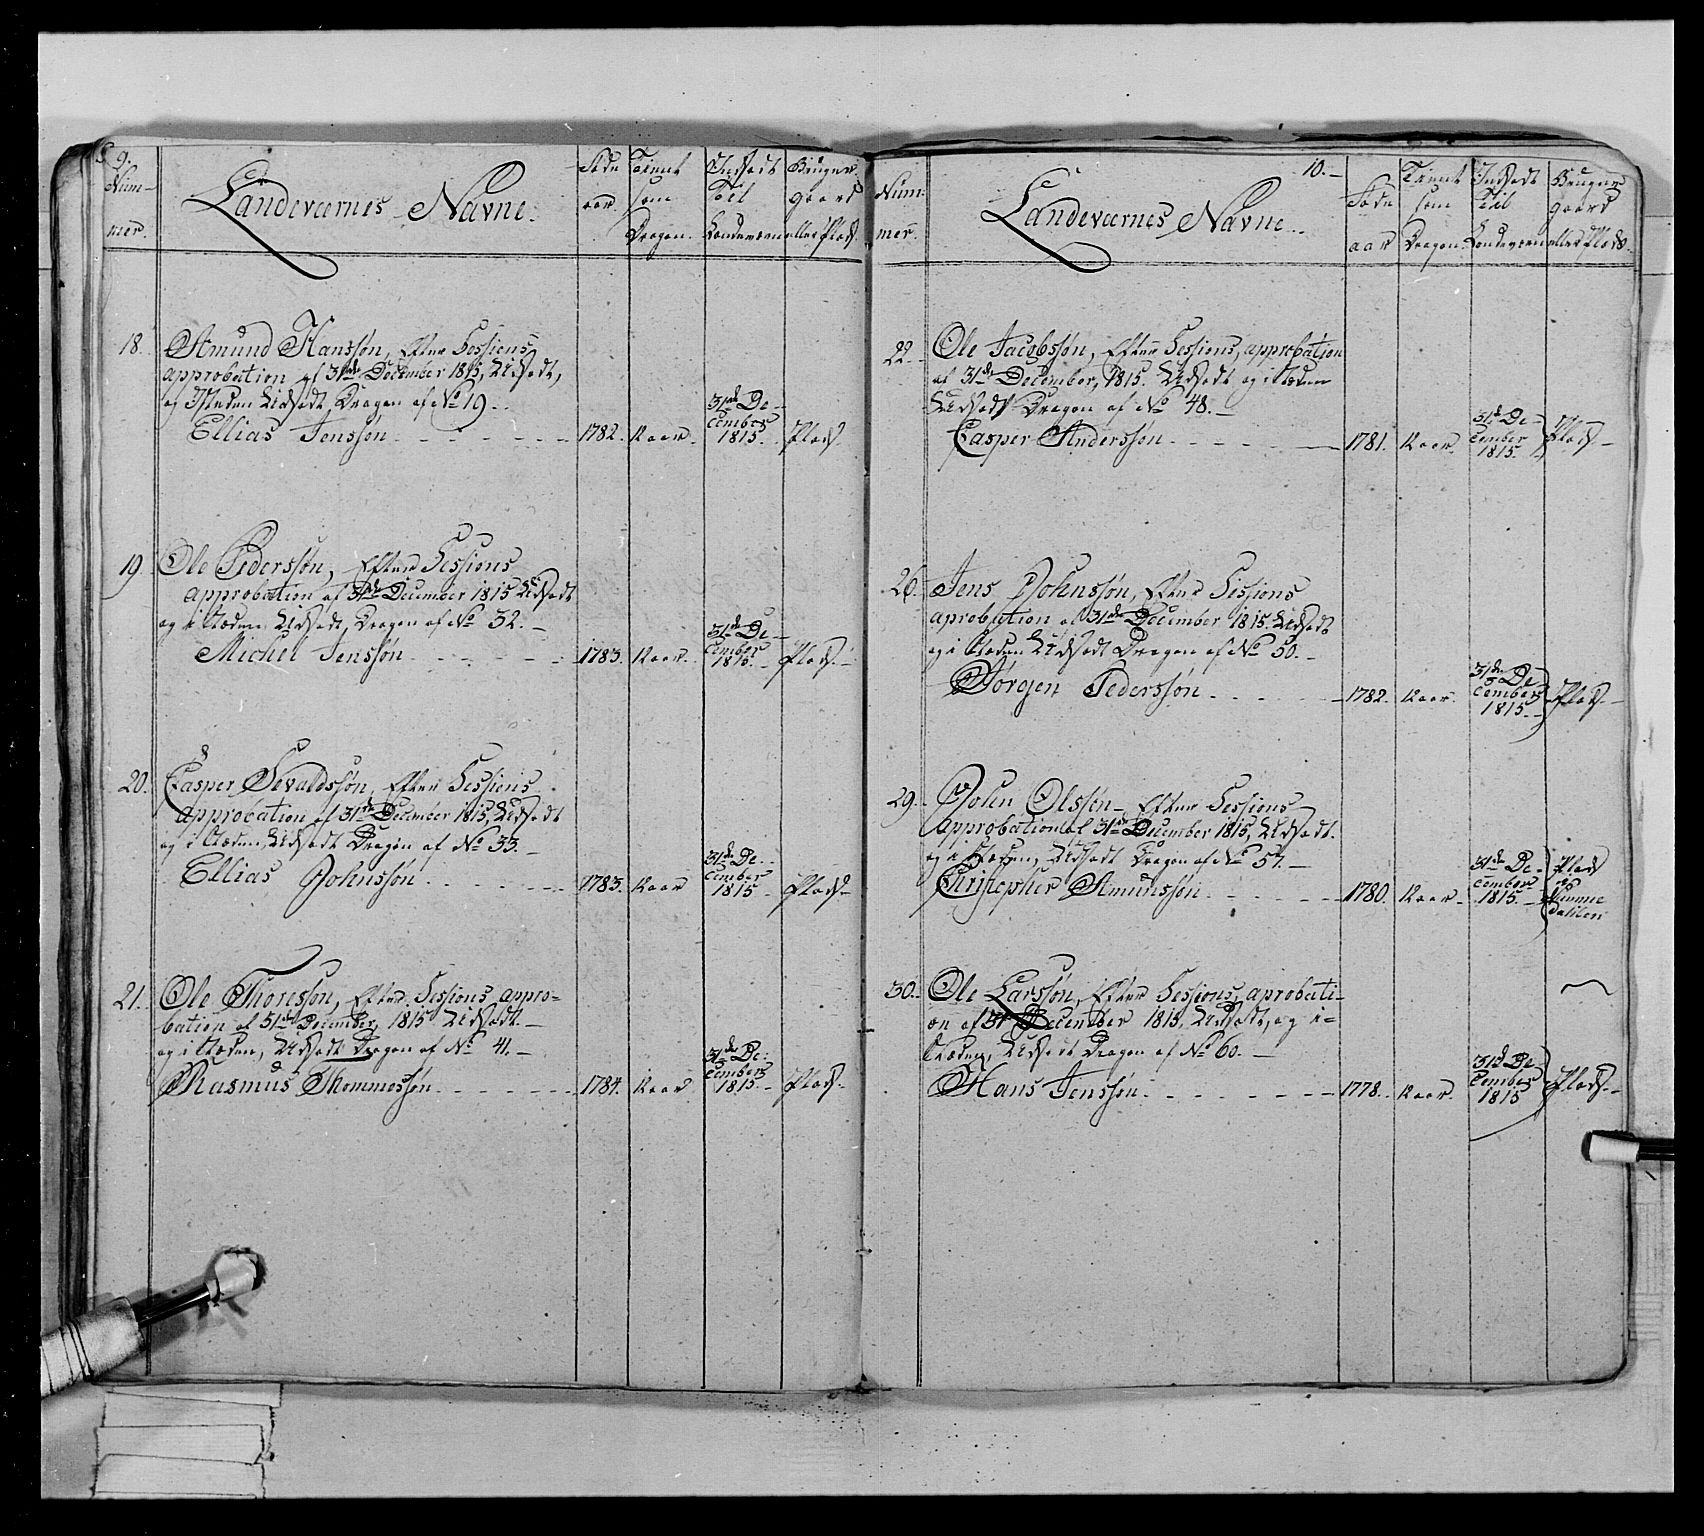 9.
Num-
mer.
Landeværnes Navne.
Føde
aar.
Tient
som
Dragon.
Indsadt
til
Landeværn
Bruger
gaard
eller Plads.
18.
Amund Hanssøn, Efter Sessions
approbation af 31de December 1815, Udsadt,
og Isteden Udsadt Dragon af No 19.
Ellias Jenssøn 1782.
31de De-
cember
1815.
Plads.
19.
Ole Pederssøn, Efter Sessions
approbation af 31de December 1815 Udsadt
og i Stæden Udsadt Dragon af No 32.
Michel Jenssøn 1783.
31de De-
cember
1815.
Plads.
20.
Casper Sevaldssøn, Efter Sessions
approbation af 31de December 1815, Udsadt
og i Stæden, Udsadt Dragon af No 33.
Ellias Johnssøn 1783.
31de De-
cember
1815
Plads.
21.
Ole Thoressøn, Efter Sessions appro-
bation af 31de December, 1815 Udsadt.
og i Stæden, Udsadt Dragon af No 41.
Rasmus Thommessøn 1784.
31de De-
cember
1815.
Plads.
10.
Num-
mer.
Landeværnes Navne.
Føde
aar
Tient
som
Dragon.
Indsadt
til
Landeværn
Bruger
gaard
eller Plads.
22.
Ole Jacobssøn, Efter Sessions, approbation
af 31de December, 1815. Udsadt og i Stæden
Udsadt Dragon af No 48.
Casper Anderssøn 1781.
31de De-
cember
1815.
Plads.
26.
Jens Johnssøn, Efter Sessions
aprobation af 31de December 1815. Udsadt
og i Stæden Udsadt Dragon af No 50.
Jørgen Pederssøn 1782.
31de De
cember
1815.
Plads.
29.
John Olssøn, Efter Sessions
approbation af 31de December 1815, Udsadt.
og i Stæden, Udsadt Dragon af No 57.
Christopher Amundssøn 1780.
31de De-
cember
1815.
Plads
30.
Ole Larssøn, Efter Sessions, aprobati-
on af 31 December 1815, Udsadt, og i-
Stæden, Udsadt Dragon af No 60.
Hans Jenssøn 1778.
31de De
cember
1815
Plads.